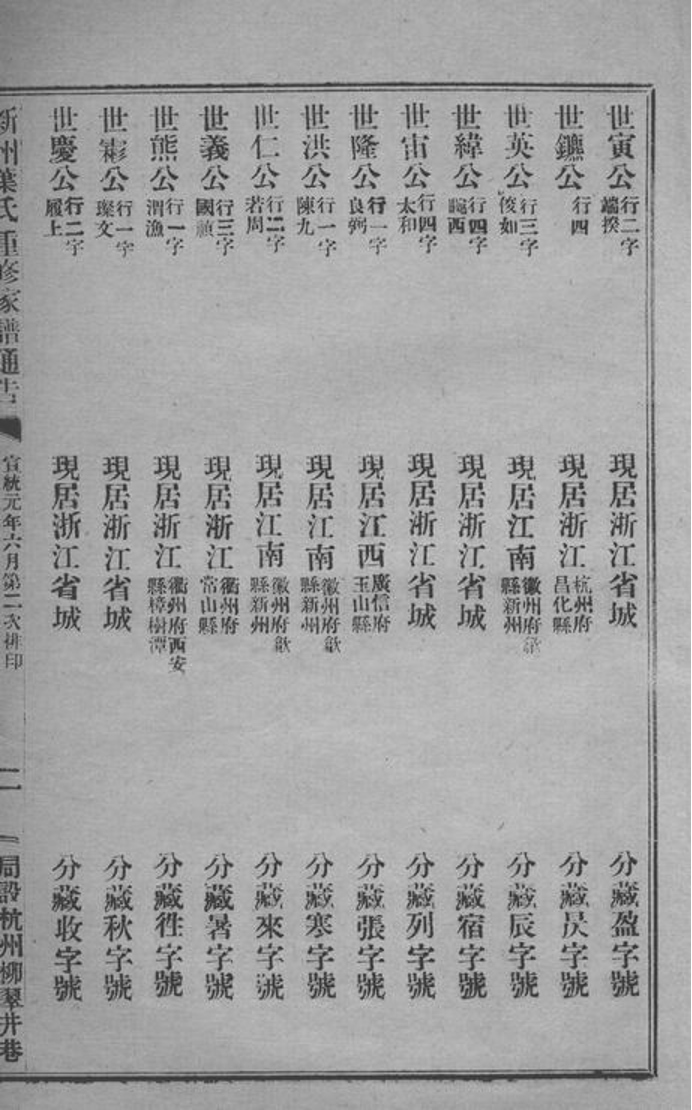 世寅公行二字端揆　現居浙江省城　分藏盈字號
世鑣公行四　現居浙江杭州府昌化縣　分藏昃字號
世英公行三字俊如　現居江南徽州府歙縣新州　分藏辰字號
世緯公行四字西　現居浙江省城　分藏宿字號
世宙公行四字太和　現居浙江省城　分藏列字號
世隆公行一字良弼　現居江西廣信府玉山縣　分藏張字號
世洪公行一字陳九　現居江南徽州府歙縣新州　分藏寒字號
世仁公行二字若周　現居江南徽州府歙縣新州　分藏來字號
世義公行三字國禎　現居浙江衢州府常山縣　分藏暑字號
世熊公行一字渭漁　現居浙江衢州府西安縣樟樹潭　分藏徃字號
世公行一字璨文　現居浙江省城　分藏秋字號
世慶公行二字履上　現居浙江省城　分藏收字號
新州葉氏重修家譜通告　宣統元年六月第二次排印　二　局設杭州柳翠井巷